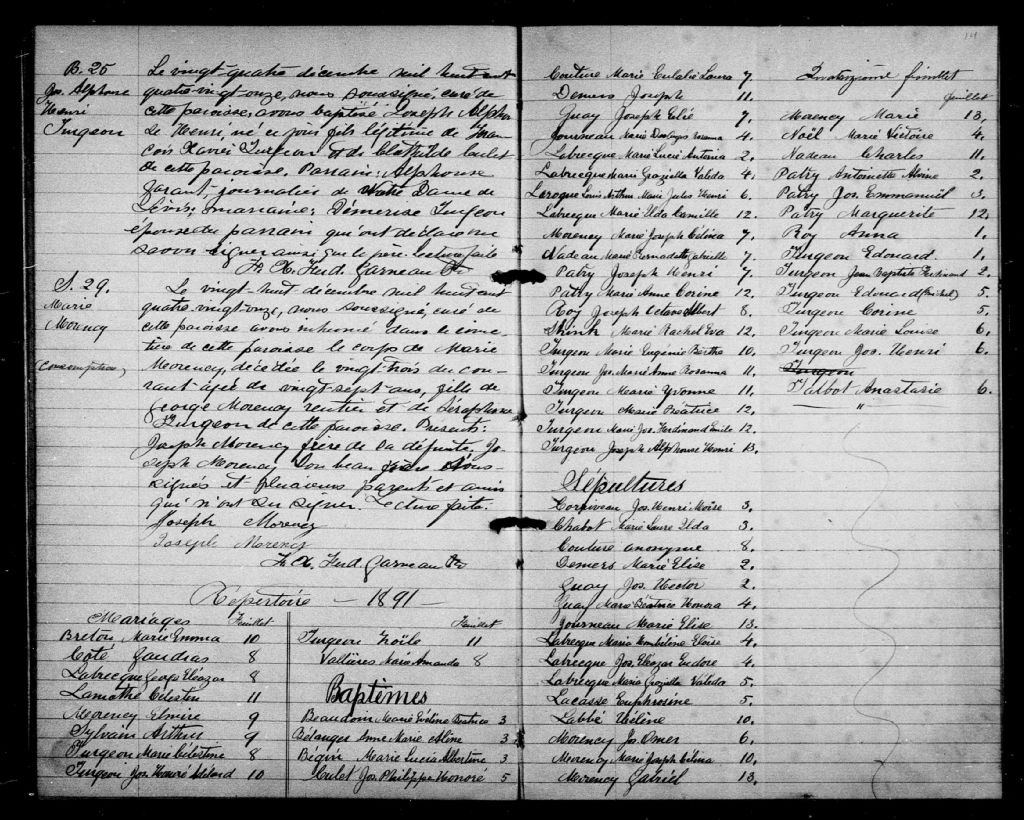 B. 25
Jos. Alphonse
Henri
Turgeon
Le vingt-quatre décembre mil huit cent
quatre-vingt-onze, nous soussigné, curé de
cette paroisse, avons baptisé Joseph Alphon
se Henri, né ce jour fils légitime de Fran
çois Xavier Turgeon et de Clothilde Aulet
de cette paroisse. Parrain: Alphonse
journalier de Notre Dame de
Lévis; marraine: Démerise Turgeon
épouse du parrain qui ont déclaré ne
savoir signer ainsi que le père. Lecture faite
F. X. Ferd. Garneau Ptre
S. 29.
Marie
Morency
(Consomption)
Le vingt-huit décembre mil huit cent
quatre-vingt-onze, nous soussigné, curé de
cette paroisse avons inhumé dans le cime
tière de cette paroisse le corps de Marie
Morency, décédée le vingt-trois du cou-
rant âgée de vingt-sept ans, fille de
George Morency rentier et de Séraphine
Turgeon de cette paroisse. Présents:
Joseph Morency frère de la défunte, Jo-
seph Morency son beau frère sous-
signés et plusieurs parents et amis
qui n'ont su signer. Lecture faite.
Joseph Morency
Joseph Morency
F. X. Ferd. Garneau Ptre
Répertoire – 1891 –
Mariages Feuillet
Breton Marie Emma 10
Coté Gaudias 8
Labrecque George Eléazar 8
Lamothe Célestin 11
Morency Elmire 9
Sylvain Arthur 9
Turgeon Marie Célestine 8
Turgeon Jos. Honoré Adélard 10
Feuillet
Turgeon Zoële 11
Vallières Marie Amanda 8
Baptêmes
Beaudoin Marie Evéline Béatrice 3
Bélanger Anne Marie Aline 3
Bégin Marie Lucia Albertine 3
Aulet Jos. Philippe Honoré 5
14
Couture Marie Eulalie Laura 7.
Demers Joseph 11.
Guay Joseph Elié 7.
Journeau Marie Desanges Rosanna 4.
Labrecque Marie Lucie Antonia 2.
Labrecque Marie Graziella Valéda 4.
Leroque Louis Arthur Marie Jules Henri 6.
Labrecque Marie Ilda Camille 12.
Morency Marie Joseph Célina 7.
Nadeau Marie Bernadette Gabrielle 7.
Patry Joseph Henri 7.
Patry Marie Anne Corine 12.
Roy Joseph Octave Albert 8.
Shink Marie Rachel Eva 12.
Turgeon Marie Eugénie Berthe 10.
Turgeon Jos. Marie Anne Rosanna 11.
Turgeon Marie Yvonne 11.
Turgeon Marie Béatrice 12.
Turgeon Marie Jos. Ferdinand Emile 12.
Turgeon Joseph Alphonse Henri 13.
Sépultures
Corriveau Jos. Henri Moïse 3.
Chabot Marie Laure Ilda 3.
Couture anonyme 8.
Demers Marie Elise 2.
Guay Jos. Hector 2.
Guay Marie Béatrice Honora 4.
Journeau Marie Elise 13.
Labrecque Marie Ombéline Eloïse 4.
Labrecque Jos. Eléazar Eudore 4.
Labrecque Marie Graziella Valéda 5.
Lacasse Euphrosine 5.
Labbé Hélène 10.
Morency Jos. Omer 6.
Morency Marie Joseph Célina 10.
Morency Gabriel 13.
Quatorzième feuillet
feuillet
Morency Marie 13,
Noël Marie Victoire 4.
Nadeau Charles 11.
Patry Antoinette Alvine 2.
Patry Jos. Emmanuël 3.
Patry Marguerite 12.
Roy Anna 1.
Turgeon Edouard 1.
Turgeon Jean Baptiste Ferdinand 2.
Turgeon Edouard (Michel) 5.
Turgeon Corine 5.
Turgeon Marie Louise 6.
Turgeon Jos. Henri 6.
Turgeon
Talbot Anastasie 6.